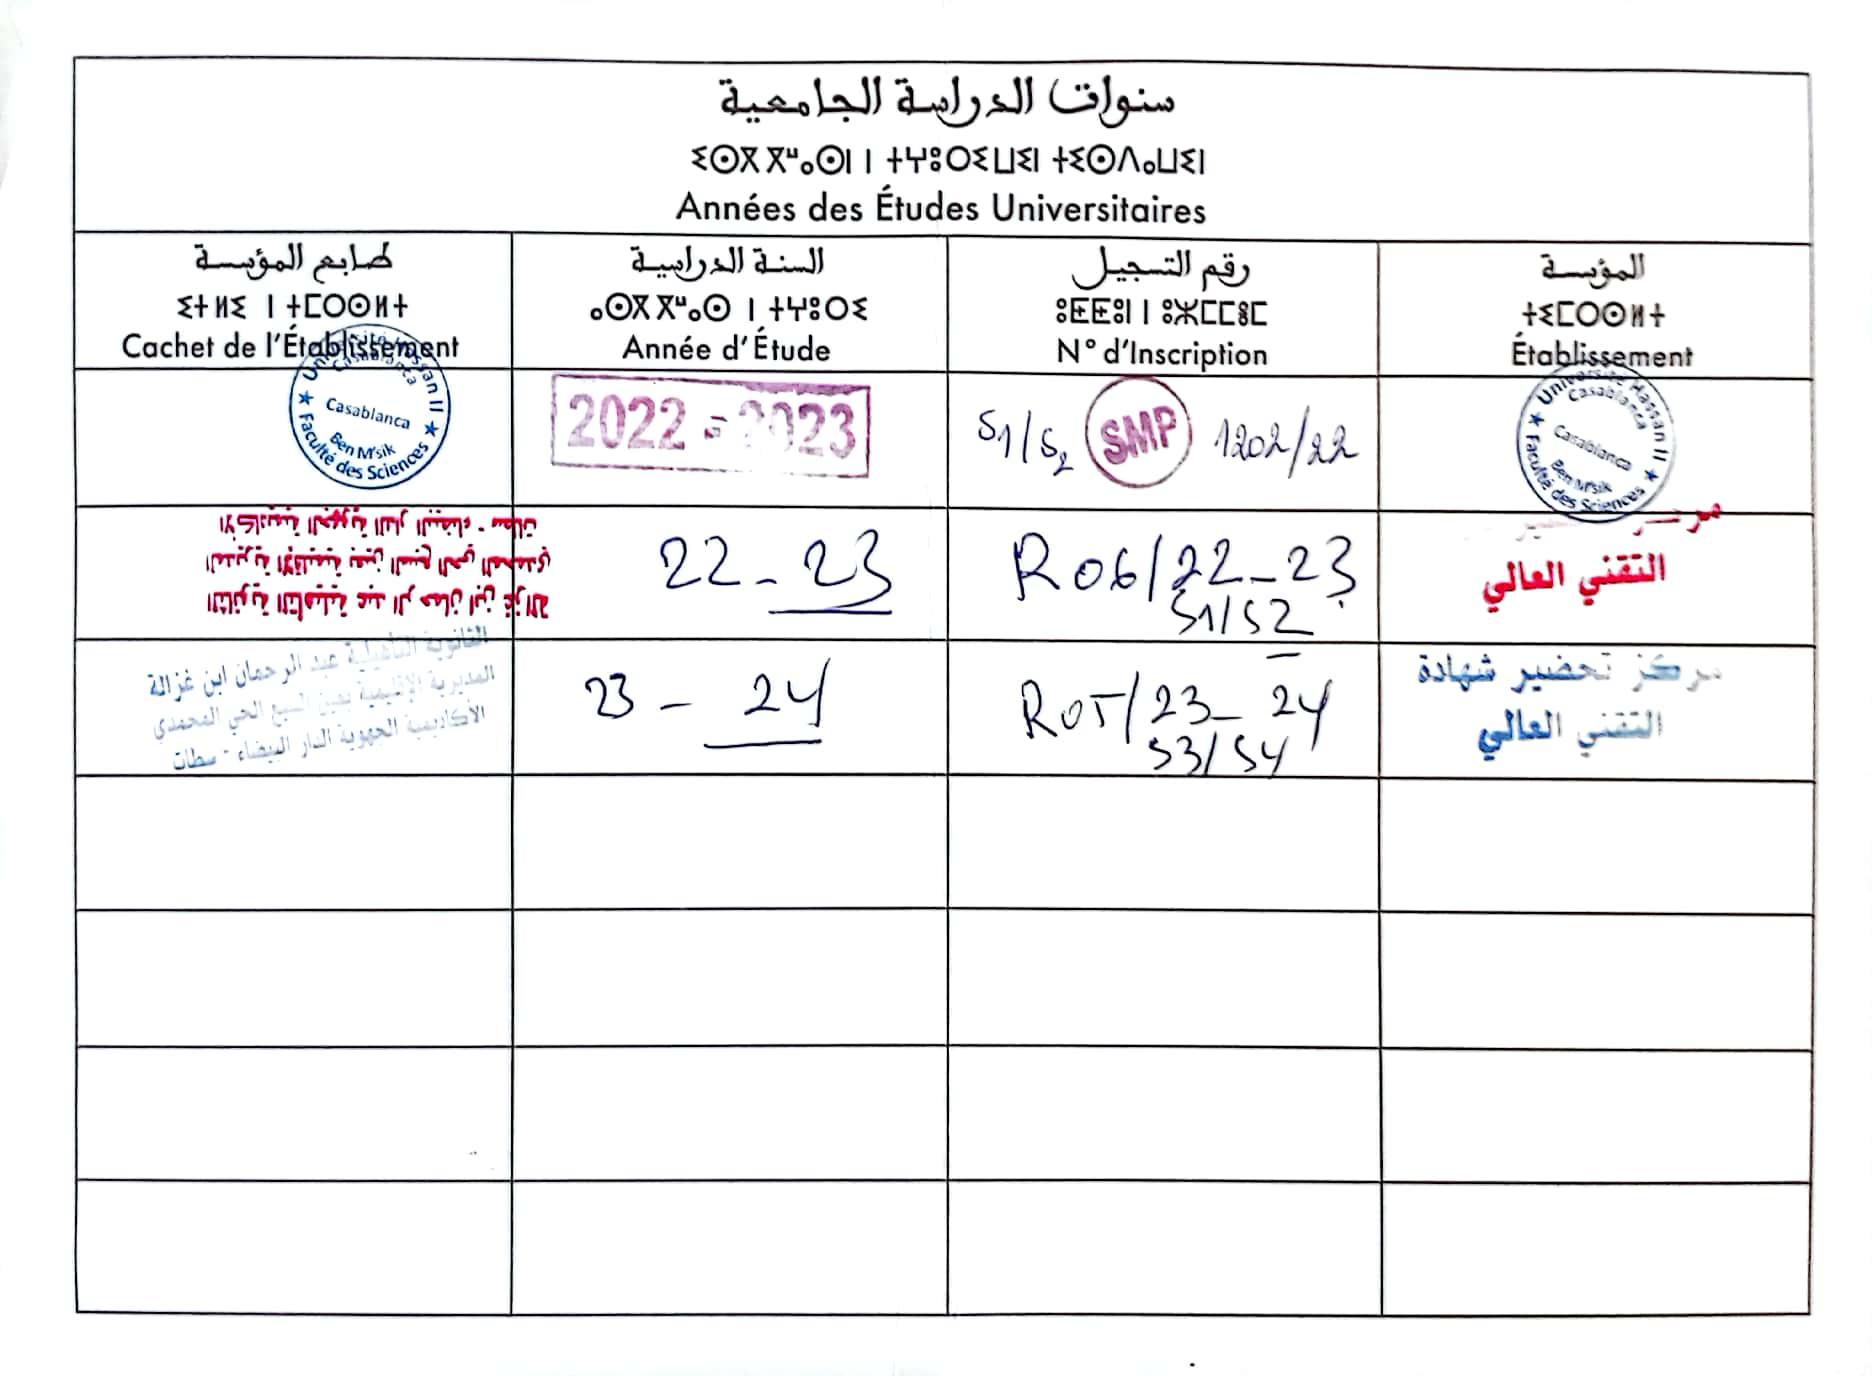 سنوات الدراسة الجامعية
ⵉⵙⴳⴳⵯⴰⵙⵏ ⵏ ⵜⵖⵓⵔⵉⵡⵉⵏ ⵜⵉⵙⴷⴰⵡⵉⵏ
Années des Études Universitaires
طابع المؤسسة
ⵉⵜⵍⵉ ⵏ ⵜⵎⵔⵙⵍⵜ
Cachet de l'Établissement
السنة الدراسية
ⴰⵙⴳⴳⵯⴰⵙ ⵏ ⵜⵖⵓⵔⵉ
Année d'Étude
رقم التسجيل
ⵓⵟⵟⵓⵏ ⵏ ⵓⵣⵎⵎⴻⵎ
N° d'Inscription
المؤسسة
ⵜⵉⵎⵔⵙⵍⵜ
Établissement
Université Hassan II
Casablanca
Casablanca
Ben M'sik
Faculté des Sciences
2022 - 2023
S1/S2 SMP 1202/22
Université Hassan II
Casablanca
Casablanca
Ben M'sik
Faculté des Sciences
الثانوية التأهيلية عبد الرحمان ابن غزالة
المديرية الإقليمية بعين السبع الحي المحمدي
الأكاديمية الجهوية الدار البيضاء - سطات
22 - 23
R06/22-23
S1/S2
مركز تحضير
التقني العالي
الثانوية التأهيلية عبد الرحمان ابن غزالة
المديرية الإقليمية بعين السبع الحي المحمدي
الأكاديمية الجهوية الدار البيضاء - سطات
23 - 24
R05/23-24
S3/S4
مركز تحضير شهادة
التقني العالي